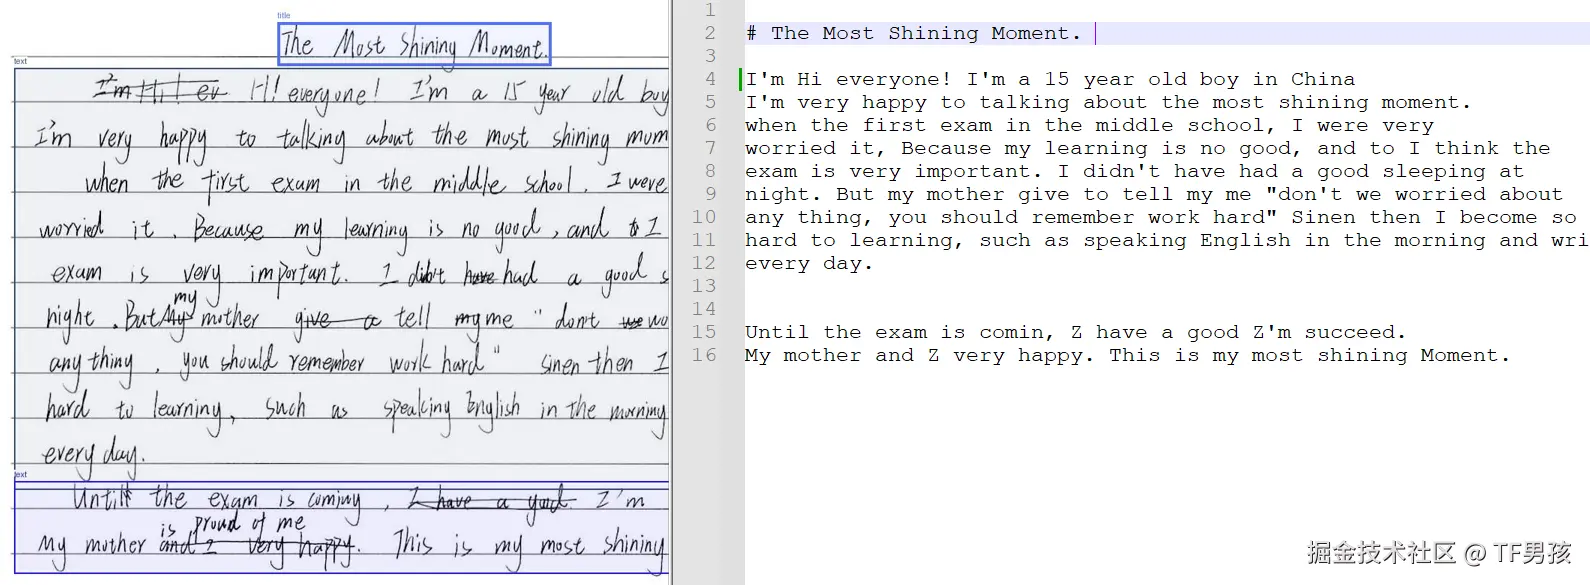 title
The Most Shining Moment.
text
I'm Hi! ev Hi! everyone! I'm a 15 year old boy
I'm very happy to talking about the most shining mom
when the first exam in the middle school. I were
worried it. Because my learning is no good, and to I
exam is very important. I didn't have had a good s
my
night. But My mother give a tell my me "don't we wo
any thing, you should remember work hard" sinen then I
hard to learning, such as speaking English in the morning
every day.
text
Until the exam is coming, I have a good I'm
is proud of me
My mother and I very happy. This is my most shining
1
2 # The Most Shining Moment.
3
4 I'm Hi everyone! I'm a 15 year old boy in China
5 I'm very happy to talking about the most shining moment.
6 when the first exam in the middle school, I were very
7 worried it, Because my learning is no good, and to I think the
8 exam is very important. I didn't have had a good sleeping at
9 night. But my mother give to tell my me "don't we worried about
10 any thing, you should remember work hard" Sinen then I become so
11 hard to learning, such as speaking English in the morning and wri
12 every day.
13
14
15 Until the exam is comin, Z have a good Z'm succeed.
16 My mother and Z very happy. This is my most shining Moment.
掘金技术社区 @ TF男孩